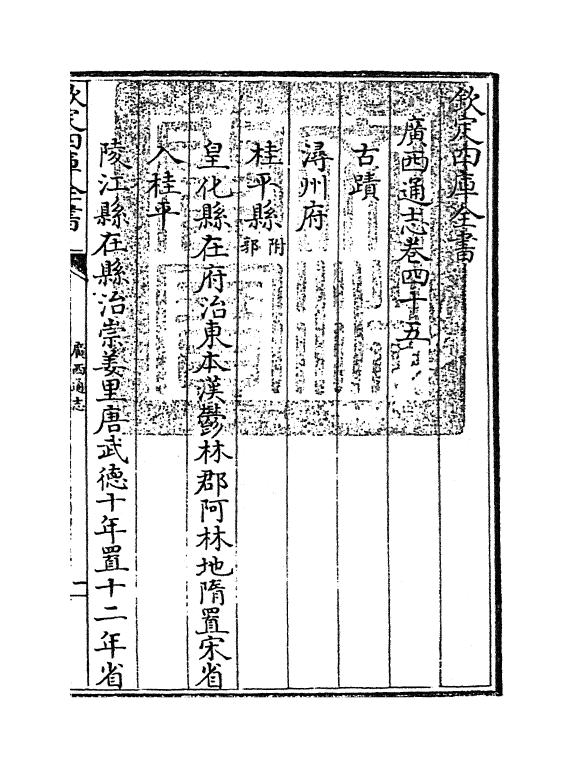 欽定四庫全書
廣西通志卷四十五
古蹟
潯州府
桂平縣附郭
皇化縣在府治東本漢鬱林郡阿林地隋置宋省
入桂平
陵江縣在縣治崇姜里唐武徳十年置十二年省
欽定四庫全書
廣西通志